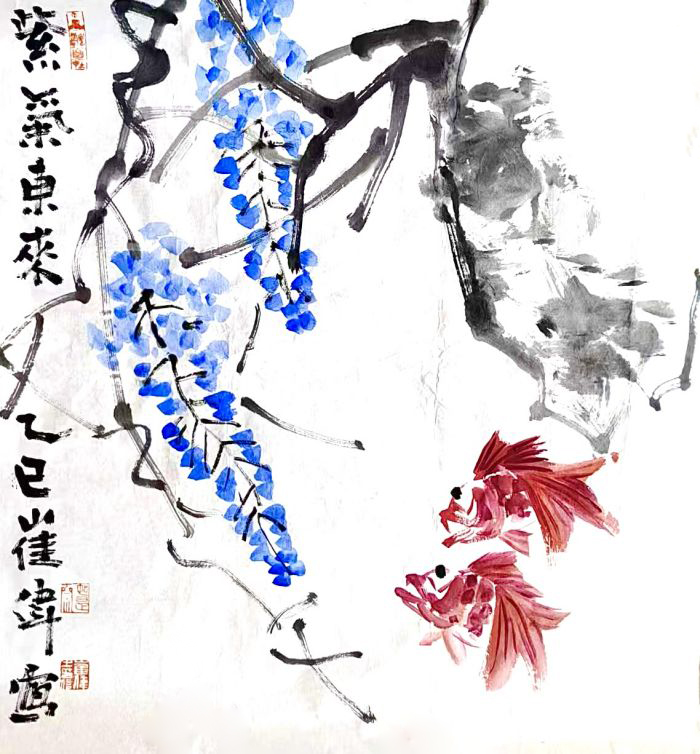 紫氣東來
乙巳崔偉寫